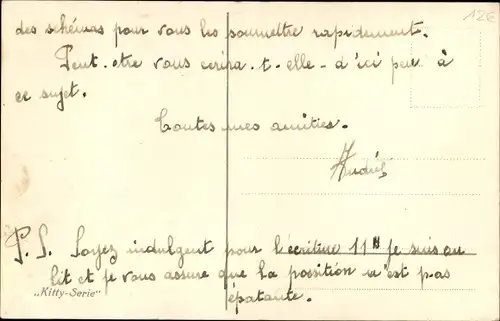 12€
des schémas pour vous les soumettre rapidement.
Peut-être vous ecrira-t-elle- d'ici peu à
ce sujet.
Toutes mes amities.
André
P.S. Soyez indulgent pour l'écriture je suis au
lit et je vous assure que la position n'est pas
épatante.
„Kitty-Serie"